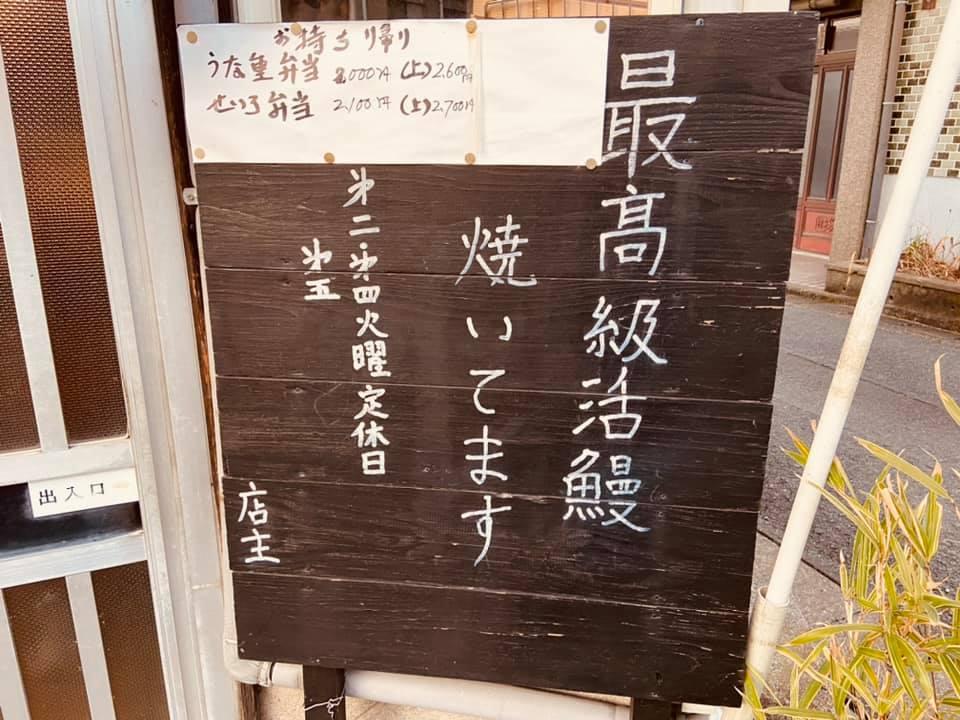 お持ち帰り
うな重弁当 2,000円 (上)2,600円
せいろ弁当 2,100円 (上)2,700円
最高級活鰻
焼いてます
㐧二・㐧四火曜定休日
㐧五
店主
出入口